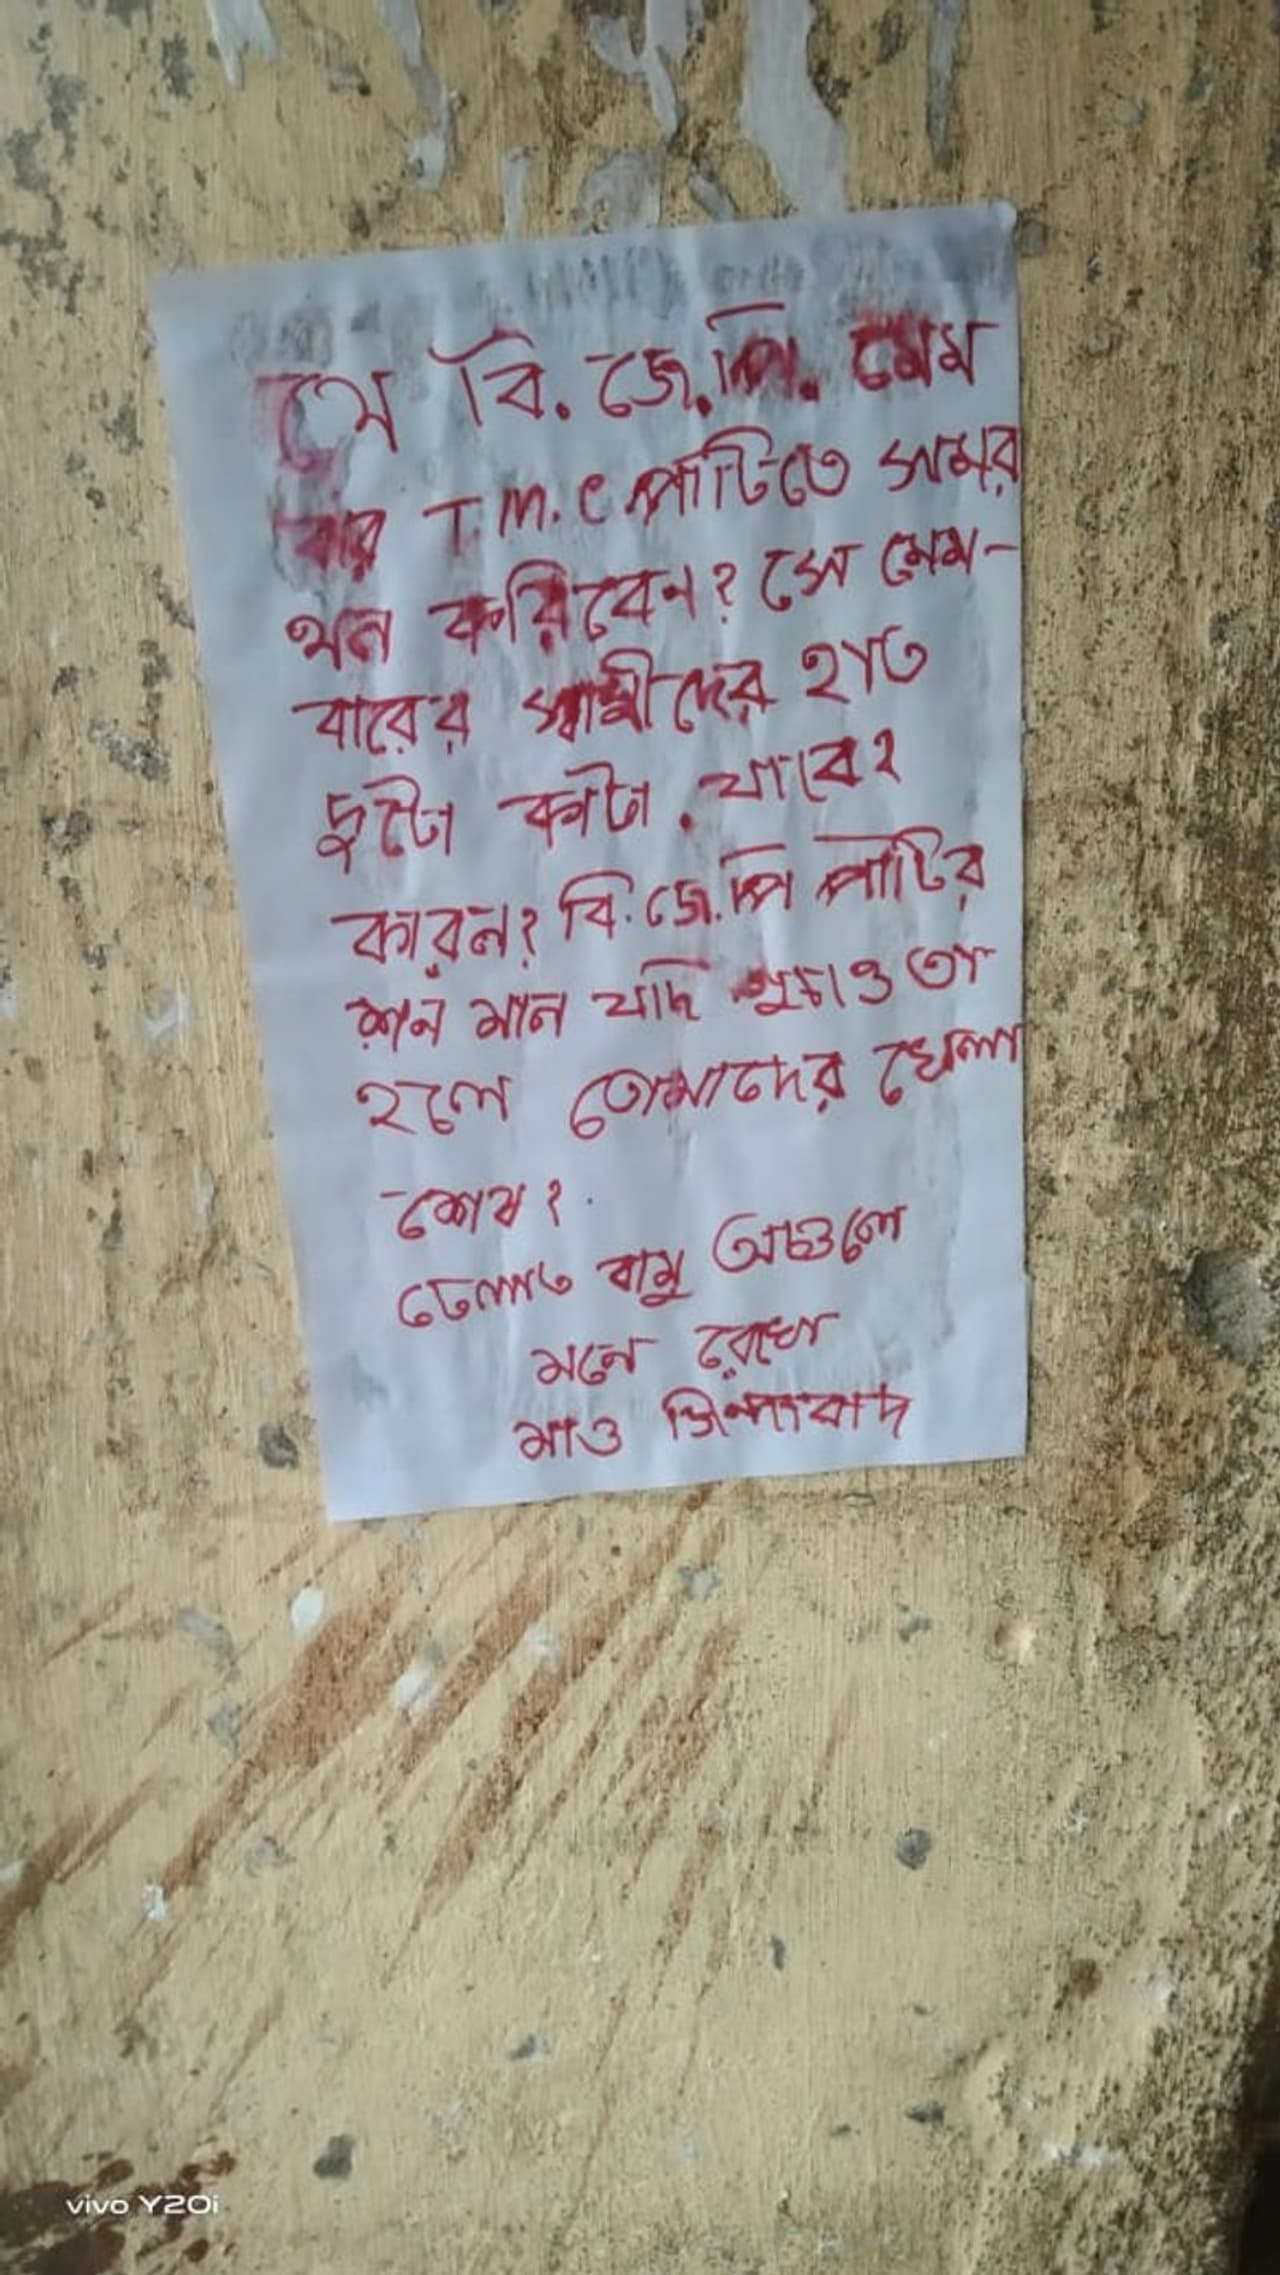 যে বি.জে.পি. মেম
বার T.M.C পার্টিতে সমর
থন করিবেন? সে মেম-
বারের স্বামীদের হাত
দুটো কাটা.যাবে?
কারন? বি.জে.পি পার্টির
শন মান যদি খুচাও তা
হলে তোমাদের খেলা
শেষ?
বামু অঞ্চলে
মনে রেখো
মাও জিন্দাবাদ
vivo Y20i